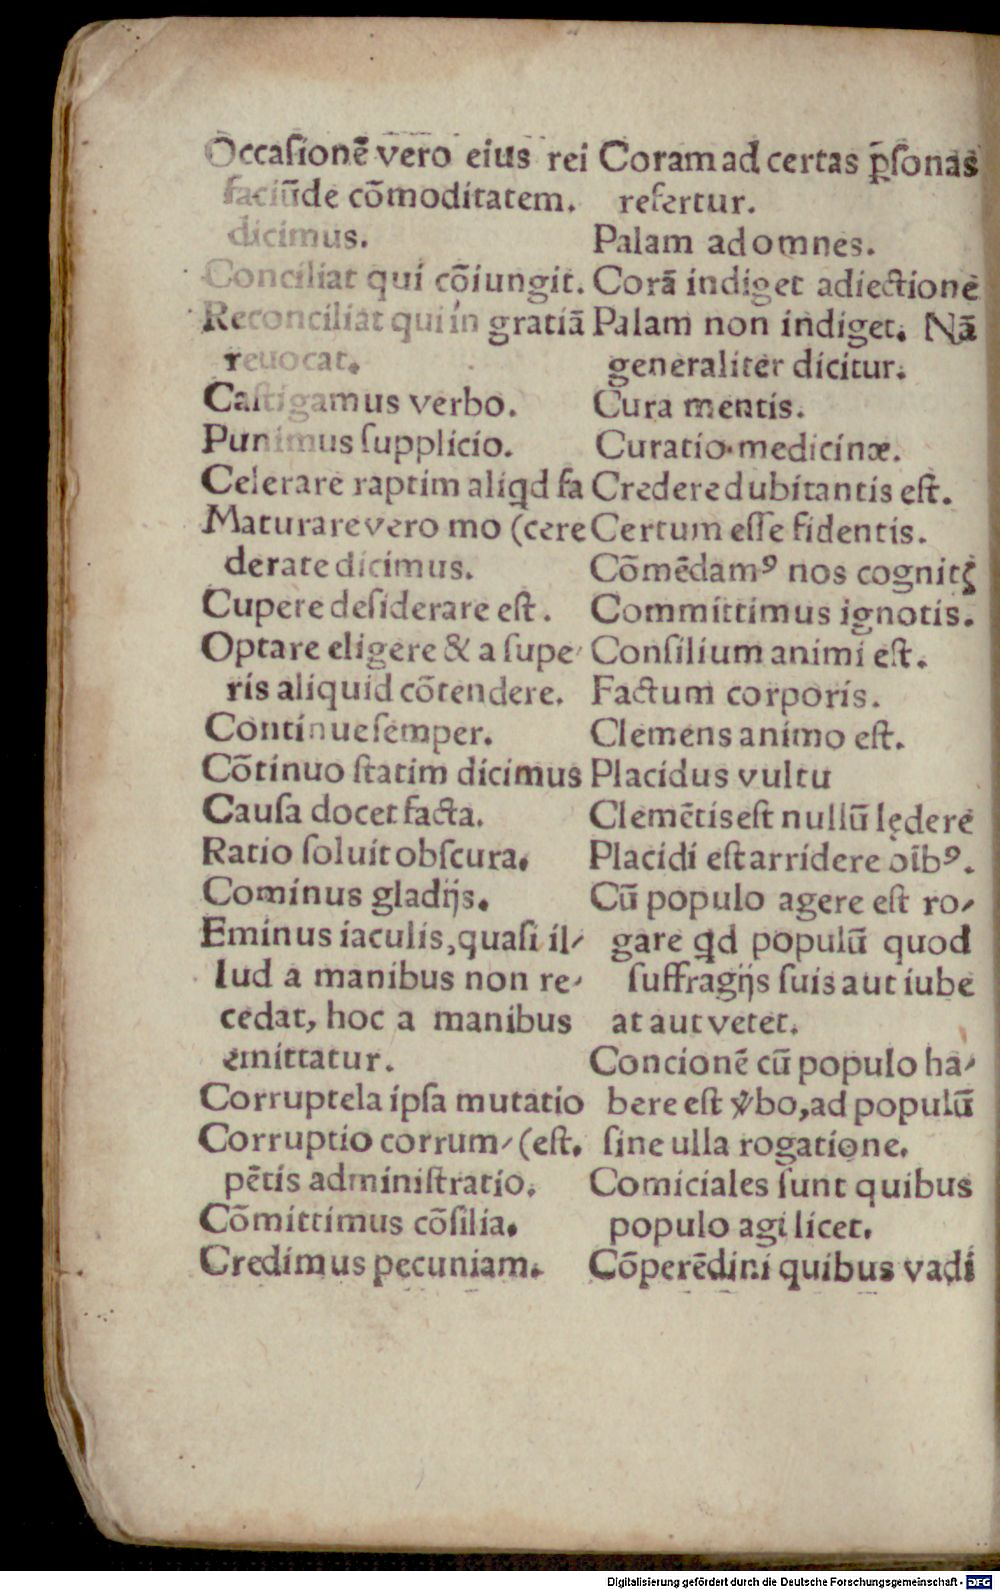 Occaſionē vero eius rei
faciūde cōmoditatem.
dicimus.
Conciliat qui cōiungit.
Reconciliat qui in gratiā
reuocat.
Caſtigamus verbo.
Punimus ſupplicio.
Celerare raptim aliqd fa
Maturare vero mo (cere
derate dicimus.
Cupere deſiderare eſt.
Optare eligere & a ſupe-
ris aliquid cōtendere.
Continue ſemper.
Cōtinuo ſtatim dicimus
Cauſa docet facta.
Ratio ſoluit obſcura.
Cominus gladijs.
Eminus iaculis, quaſi il-
lud a manibus non re-
cedat, hoc a manibus
emittatur.
Corruptela ipſa mutatio
Corruptio corrum- (eſt.
pētis adminiſtratio.
Cōmittimus cōſilia.
Credimus pecuniam.
Coram ad certas p̄ſonas
refertur.
Palam ad omnes.
Corā indiget adiectione
Palam non indiget. Nā
generaliter dicitur.
Cura mentis.
Curatio medicinæ.
Credere dubitantis eſt.
Certum eſſe fidentis.
Cōmēdamꝰ nos cognitꝭ
Committimus ignotis.
Conſilium animi eſt.
Factum corporis.
Clemens animo eſt.
Placidus vultu
Clemētis eſt nullū lędere
Placidi eſt arridere oībꝰ.
Cū populo agere eſt ro-
gare qd populū quod
ſuffragijs ſuis aut iube
at aut vetet.
Concionē cū populo ha-
bere eſt ꝟbo, ad populū
ſine ulla rogatione.
Comiciales ſunt quibus
populo agi licet.
Cōperēdini quibus vadi
Digitalisierung gefördert durch die Deutsche Forschungsgemeinschaft - DFG